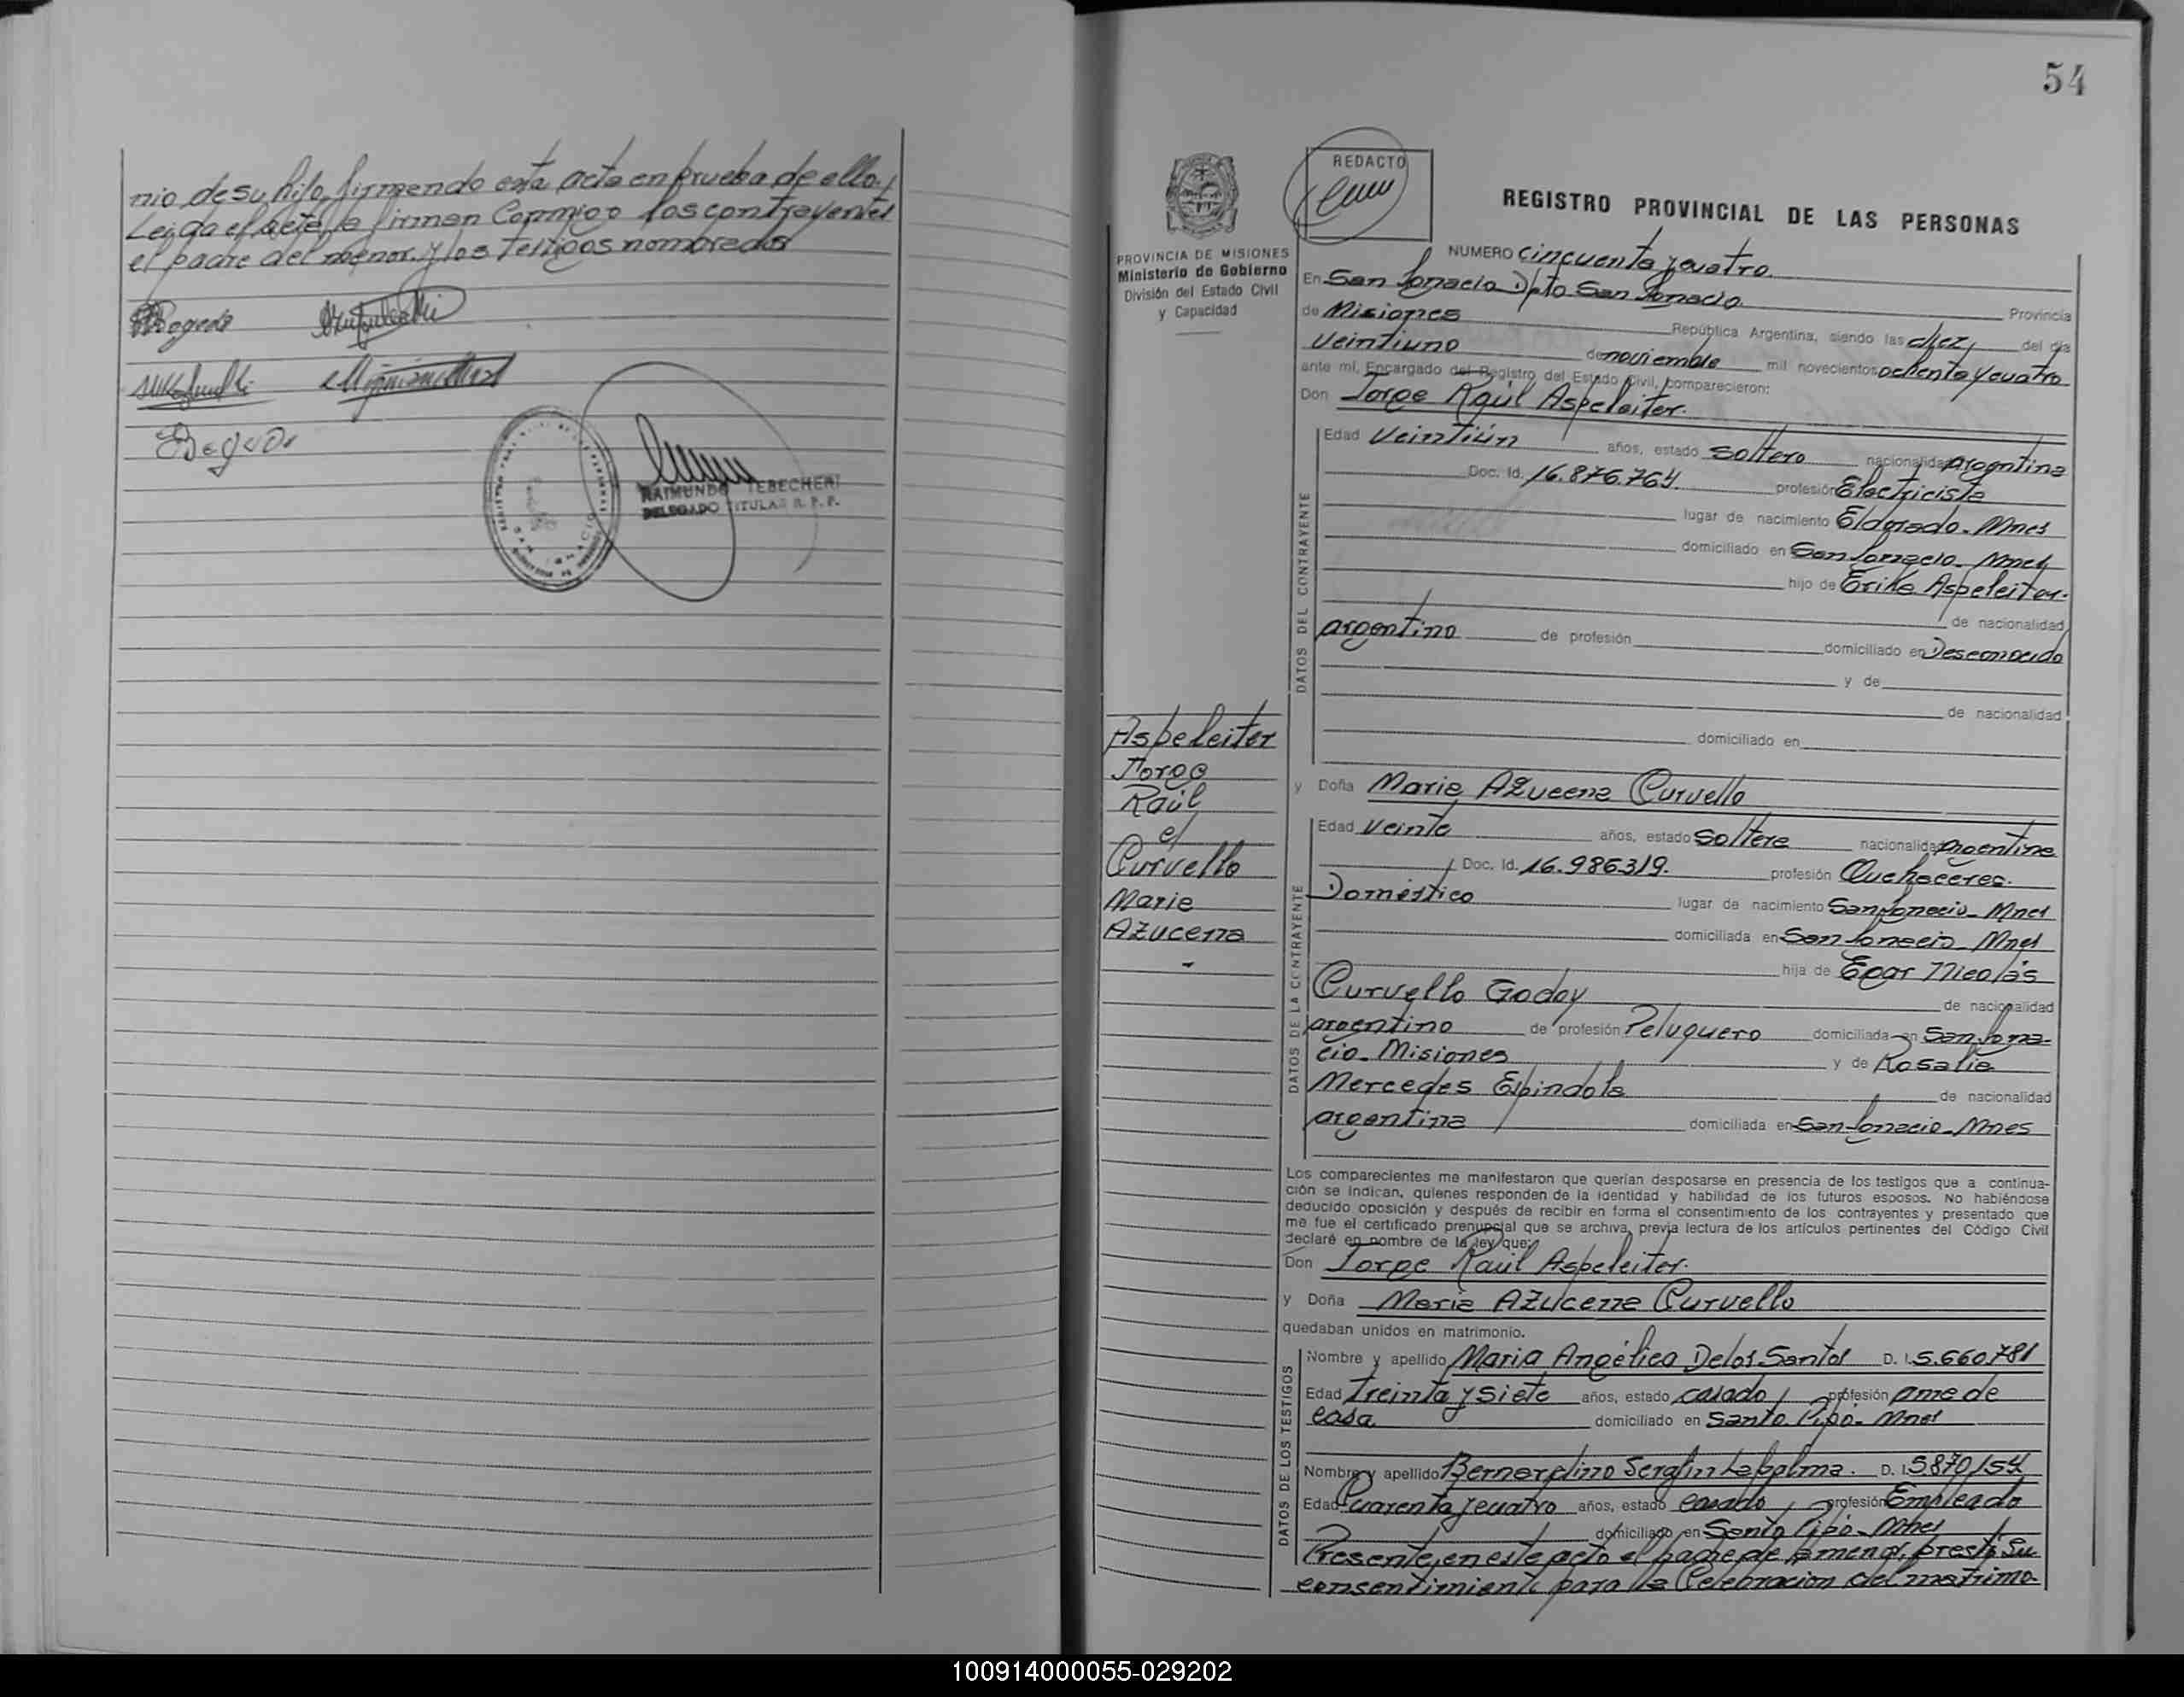 nio de su hijo, firmando esta acta en prueba de ello.
Leida el acta la firman Conmigo los contrayentes
el padre del menor. y los testigos nombrados
RAIMUNDO TEBECHERI
DELEGADO TITULAR R. P. P.
54
REDACTO
PROVINCIA DE MISIONES
Ministerio de Gobierno
División del Estado Civil
y Capacidad
REGISTRO PROVINCIAL DE LAS PERSONAS
NUMERO cincuenta y cuatro
En San Ignacio Dpto San Ignacio
de Misiones Provincia
República Argentina, siendo las diez, del día
veintiuno de noviembre mil novecientos ochenta y cuatro
ante mí, Encargado del Registro del Estado Civil, comparecieron:
Don Jorge Raúl Aspeleiter.
DATOS DEL CONTRAYENTE
Edad veintiún años, estado soltero nacionalidad argentina
Doc. Id. 16.876.764. profesión Electricista
lugar de nacimiento Eldorado - Mnes
domiciliado en San Ignacio - Mnes
hijo de Erike Aspeleiter.
de nacionalidad
argentino de profesión domiciliado en Desconocido
y de
de nacionalidad
domiciliado en
Aspeleiter
Jorge
Raúl
c/
Curvello
Maria
Azucena
y Doña Maria Azucena Curvello
DATOS DE LA CONTRAYENTE
Edad veinte años, estado soltera nacionalidad argentina
Doc. Id. 16.986.319. profesión Quehaceres
Doméstico lugar de nacimiento San Ignacio - Mnes
domiciliada en San Ignacio - Mnes
hija de Egar Nicolás
Curvello Godoy de nacionalidad
argentino de profesión Peluquero domiciliada en San Igna-
cio - Misiones y de Rosalia
Mercedes Espindola de nacionalidad
argentina domiciliada en San Ignacio - Mnes
Los comparecientes me manifestaron que querían desposarse en presencia de los testigos que a continua-
ción se indican, quienes responden de la identidad y habilidad de los futuros esposos. No habiéndose
deducido oposición y después de recibir en forma el consentimiento de los contrayentes y presentado que
me fue el certificado prenupcial que se archiva, previa lectura de los artículos pertinentes del Código Civil
declaré en nombre de la ley que:
Don Jorge Raúl Aspeleiter.
y Doña Maria Azucena Curvello
quedaban unidos en matrimonio.
DATOS DE LOS TESTIGOS
Nombre y apellido Maria Angélica Delos Santos D. I. 5.660.781
Edad Treinta y siete años, estado casado profesión ama de
casa domiciliado en Santo Pipó - Mnes
Nombre y apellido Bernardino Serafin Lapalma. D. I. 5870154
Edad Cuarenta y cuatro años, estado casado profesión Empleado
domiciliado en Santo Pipó - Mnes
Presente en este acto el padre de la menor, prestó su
consentimiento para la Celebracion del matrimo-
100914000055-029202